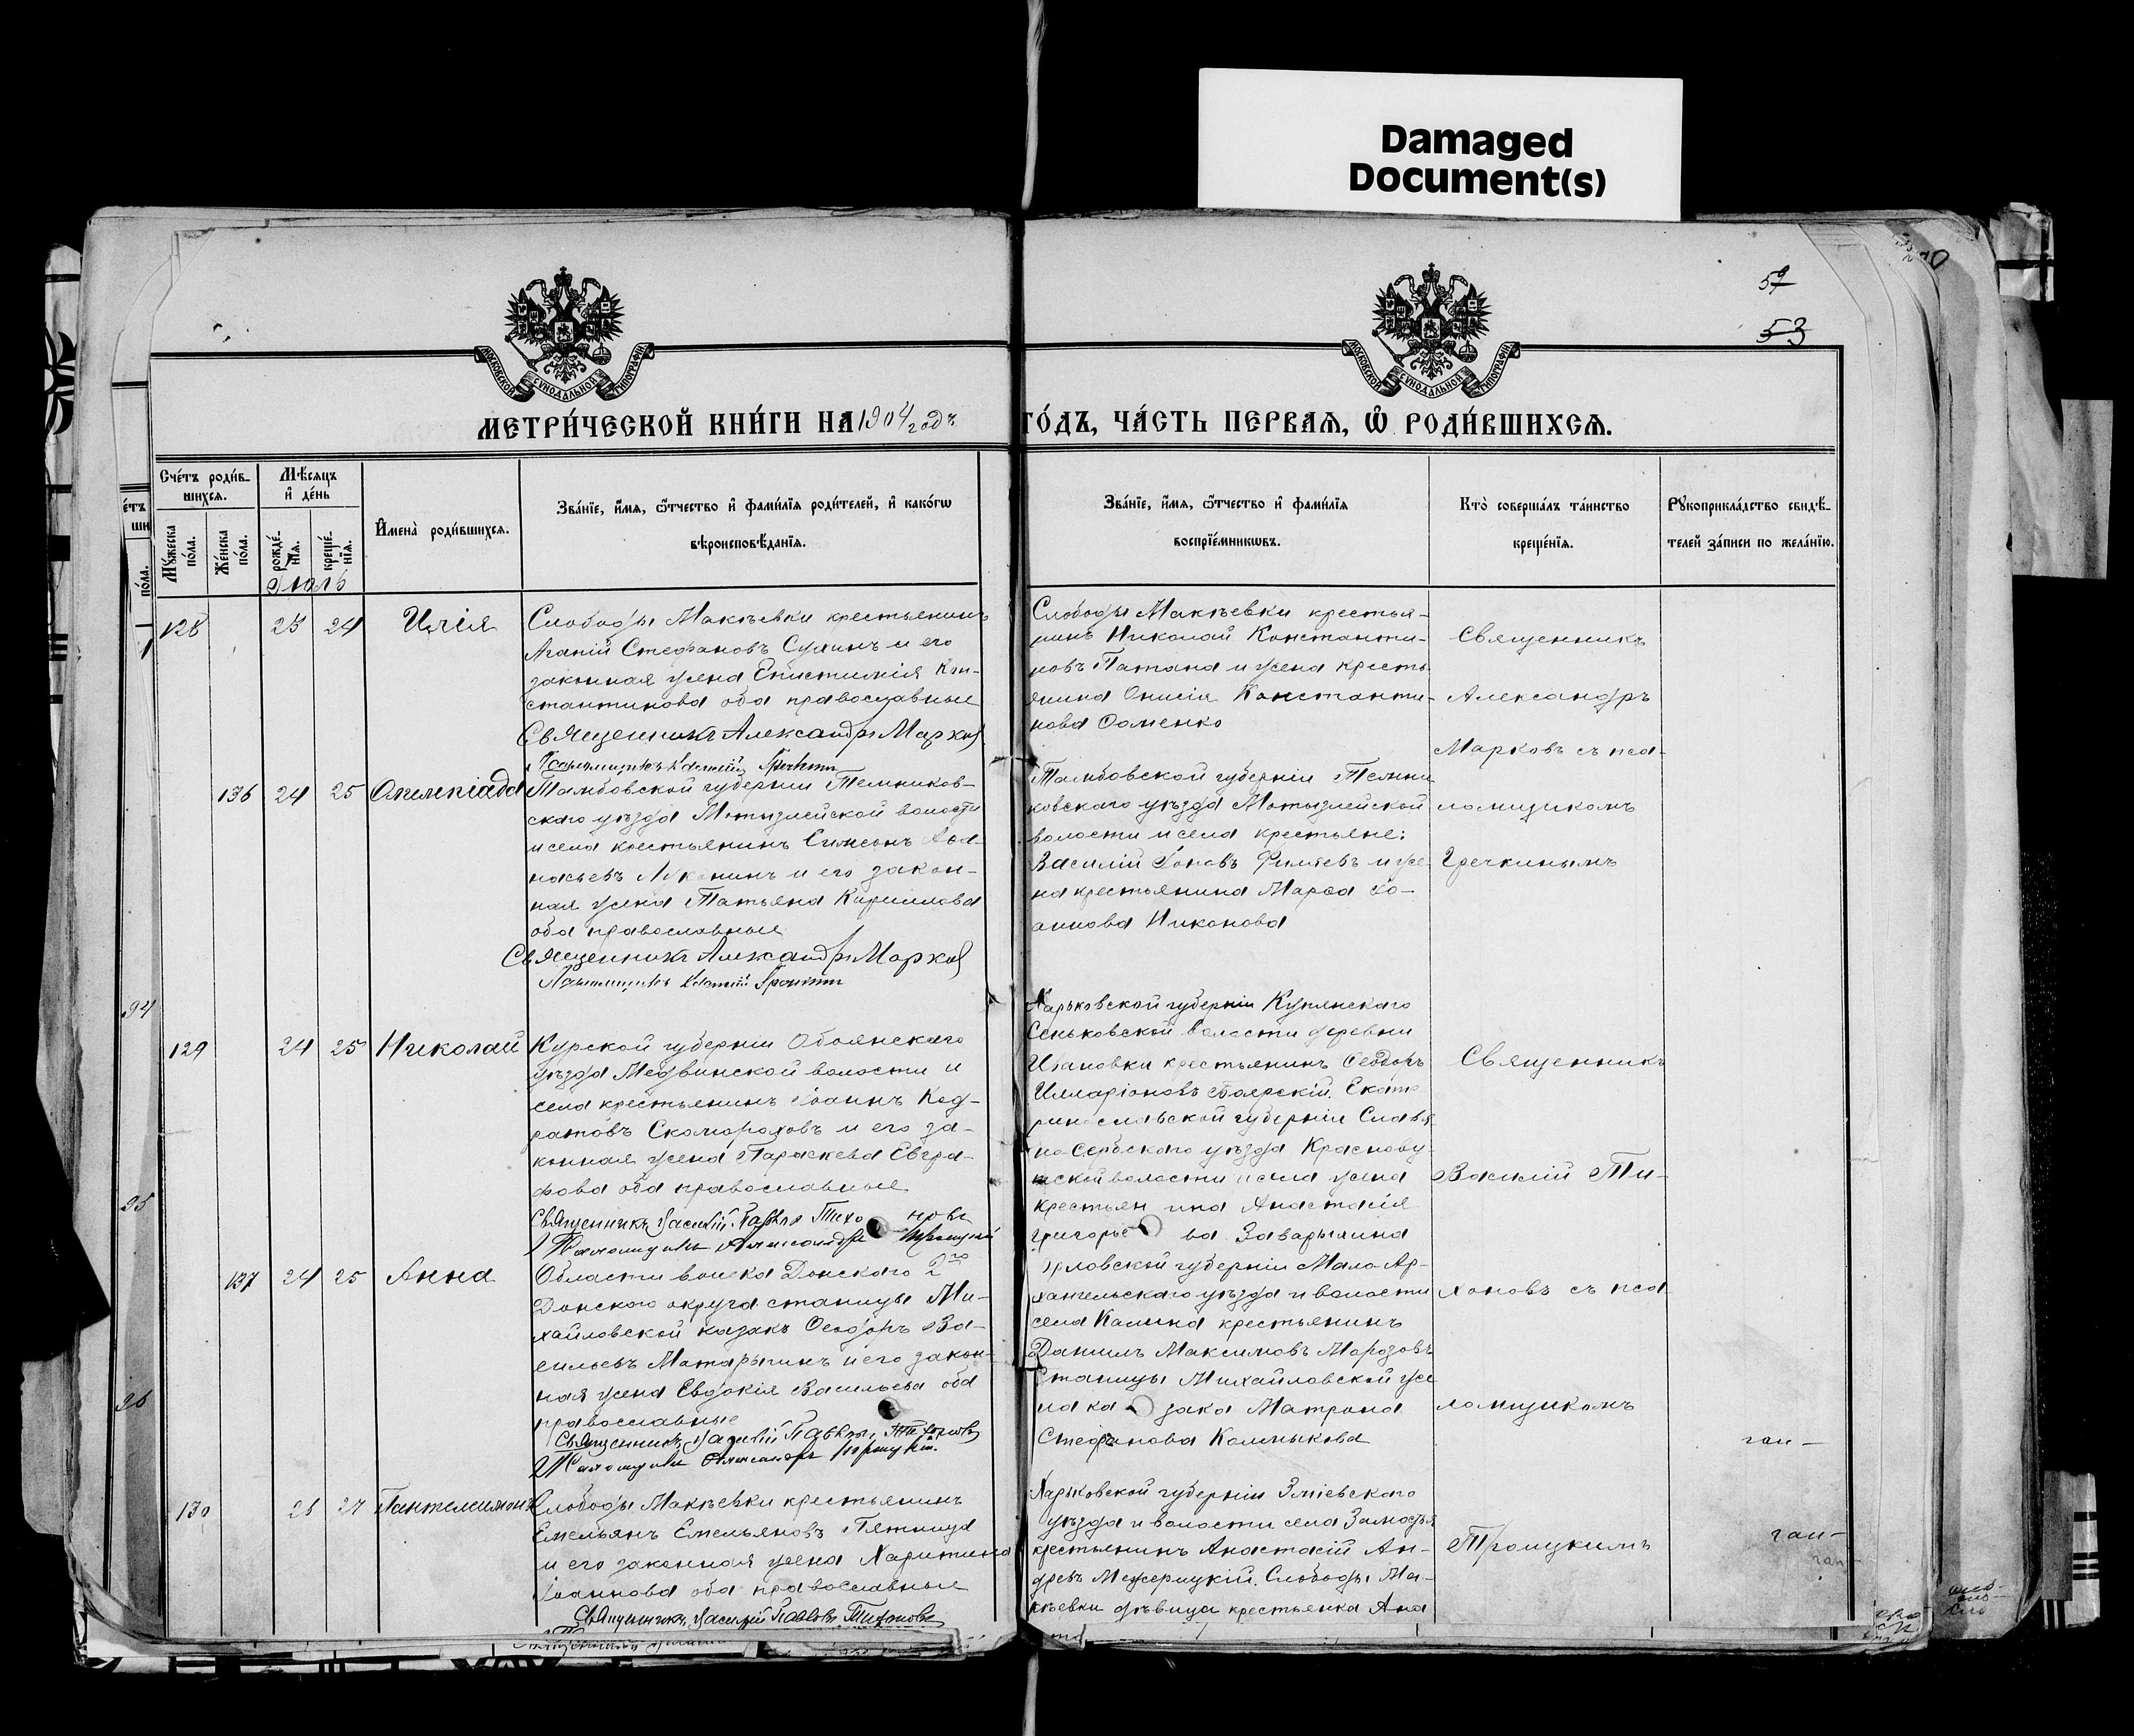 Damaged
Document(s)
59
53
МОСКОВСКОЙ СѴНОДАЛЬНОЙ ТИПОГРАФІИ
МОСКОВСКОЙ СѴНОДАЛЬНОЙ ТИПОГРАФІИ
МЕТРИ́ЧЕСКОЙ КНИ́ГИ НА 1904 годъ
ГО́ДЪ, ЧА́СТЬ ПЕРВАЯ, Ѡ РОДИ́ВШИХСЯ.
Сче́тъ роди́в-
шихся.
Мѣсяцъ
и де́нь
Мужеска по́ла.
Же́нска по́ла.
рожде́-нія.
креще́-нія.
Июль
Имена̀ роди́вшихся.
Зва́ніе, и́мя, ѻ́тчество и фами́лія роди́телей, и како́гѡ
вѣроисповѣ́данія.
Зва́ніе, и́мя, ѻ́тчество и фами́лія
воспріе́мникѡвъ.
Кто̀ соверша́лъ та́инство
креще́нія.
Рукоприкла́дство свидѣ́-
телей за́писи по жела́нію.
128 23 24 Илія
Слободы Макѣевки крестьянинъ
Агапій Стефановъ Сухинъ и его
законная жена Епистимія Кон-
стантинова оба православные
Священникъ Александръ Марковъ
Псаломщикъ
Слободы Макѣевки крестья-
нинъ Николай Константи-
новъ Патана и жена кресть
янина Онисія Константи-
нова Фоменко
Священникъ
Александръ
Марковъ съ пса-
ломщикомъ
Гречкинымъ
136 24 25 Олимпіада
Тамбовской губерніи Темников-
скаго уѣзда Мотызлейской волости
и села крестьянинъ Симеонъ Афа-
насьевъ Луконинъ и его закон-
ная жена Татьяна Кириллова
оба православные
Священникъ Александръ Марковъ
Псаломщикъ
Тамбовской губерніи Темни
ковскаго уѣзда Мотызлейской
волости и села крестьяне:
Василій Іоновъ Филяевъ и же
на крестьянина Марѳа Іо-
аннова Никонова
129 24 25 Николай
Курской губерніи Обоянскаго
уѣзда Медвинской волости и
села крестьянинъ Іоаннъ Код-
ратовъ Скоморохов и его за-
конная жена Параскева Евгра-
фова оба православные
Священникъ Василій Павловъ Тихо новъ
Псаломщикъ Александръ Троицкій
Харьковской губерніи Купянскаго
Сеньковской волости деревни
Ивановки крестьянинъ Ѳеодоръ
Илларіоновъ Боярскій. Екате
ринославской губерніи Славя
но-Сербскаго уѣзда Краснову
тской волости и села жена
крестьян ина Анастасія
Григорье ва Заварыкина
Священникъ
Василій Ти-
хоновъ съ пса
ломщикомъ
Троицкимъ
137 24 25 Анна
Области войска Донского 2го
Донского округа станицы Ми-
хайловской казакъ Ѳеодоръ Ва-
сильевъ Матарыгинъ и его закон-
ная жена Евдокія Васильева оба
православные
Священникъ Василій Павловъ Тихоновъ
Псаломщикъ Александръ Троицкій
Орловской губерніи Мало-Ар-
хангельскаго уѣзда и волости
села Калына крестьянинъ
Даниилъ Максимовъ Морозовъ
Станицы Михайловской же
на ка зака Матрона
Стефанова Калмыкова
130 26 27 Пантелеимонъ
Слободы Макѣевки крестьянинъ
Емельянъ Емельяновъ Пятница
и его законная жена Харитина
Іоаннова оба православные
Священникъ Василій Павловъ Тихоновъ
Харьковской губерніи Зміевскаго
уѣзда и волости села Замостья
крестьянинъ Анастасій Ан-
древъ Межерицкій. Слободы Ма-
кѣевки дѣвица крестьянка Ана
94
95
96